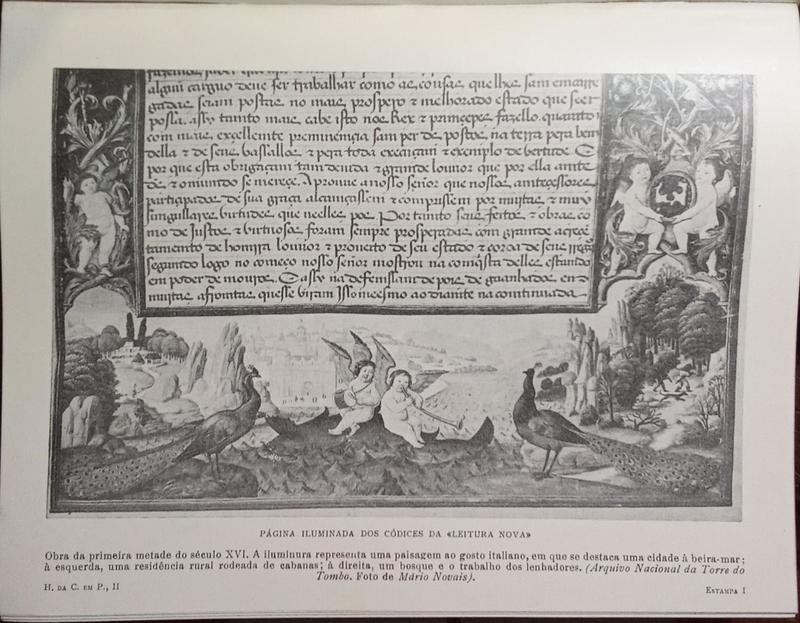 alguũ carguo deue ser trabalhar como as cousas que lhes sam emcarre
gadas sejam postas no mais prospero & melhorado estado que seer
possa. assy tamto mais cabe isto nos Rex & primçepes fazello. quanto
com mais exçellemte preminençia sam per deos postos na terra pera bem
della & de seus bassallos & pera toda exeiçam & exemplo de bertude. E
por que esta obrigaçam tam deuida & grande louuor que por ella amte
deos & o mundo se mereçe. Aprouue a nosso senor que nossos amteçessores
partiçipados de sua graça alcançassem & comprissem por muitas & muy
simgullares birtudes que nelles pos. Por tamto seus feitos & obras co
mo de Justos & birtuosos foram sempre prosperadas com gramde acreçẽ
tamento de homrra louuor & proueito de seu estado & coroa de seus rregnos
segumdo logo no começo nosso señor mostrou na comq̃sta delles estamdo
em poder de mouros. E assy na defenssam depois de guanhados em
muitas afromtas quesse biram Isso meesmo ao diamte na comtinuada
PÁGINA ILUMINADA DOS CÓDICES DA «LEITURA NOVA»
Obra da primeira metade do século XVI. A iluminura representa uma paisagem ao gosto italiano, em que se destaca uma cidade à beira-mar;
à esquerda, uma residência rural rodeada de cabanas; à direita, um bosque e o trabalho dos lenhadores. (Arquivo Nacional da Torre do
Tombo. Foto de Mário Novais).
H. DA C. EM P., II
ESTAMPA I